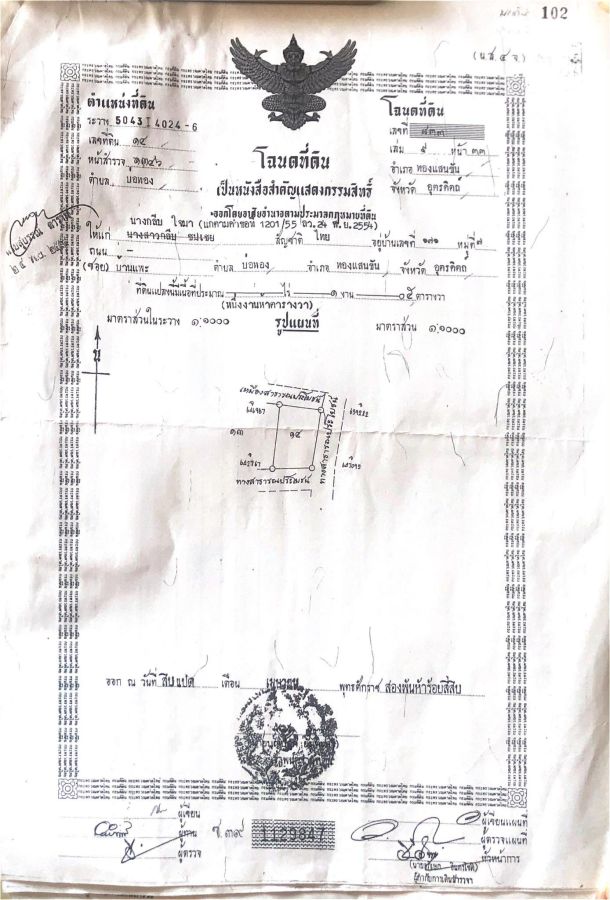 102
(น.ส.๔ จ)
ตำแหน่งที่ดิน
ระวาง 5043 I 4024-6
เลขที่ดิน ๑๕
หน้าสำรวจ
ตำบล บ่อทอง
โฉนดที่ดิน
เลขที่ ๘๓๓
เล่ม ๙ หน้า ๓๓
อำเภอ ทองแสนขัน
จังหวัด อุตรดิตถ์
โฉนดที่ดิน
เป็นหนังสือสำคัญแสดงกรรมสิทธิ์
ออกโดยอาศัยอำนาจตามประมวลกฎหมายที่ดิน
นางกลีบ ใจมา (แก้ตามคำขอที่ 1201/55 ลว.24 พ.ย.2554)
ให้แก่ นางสาวกลีบ สัญชาติ ไทย อยู่บ้านเลขที่ ๑๖๑ หมู่ที่ ๗
ถนน -
(ซอย) บ้านแพะ ตำบล บ่อทอง อำเภอ ทองแสนขัน จังหวัด อุตรดิตถ์
ที่ดินแปลงนี้มีเนื้อที่ประมาณ - ไร่ ๑ งาน ๐๕ ตารางวา
(หนึ่งงานห้าตารางวา)
มาตราส่วนในระวาง ๑:๑๐๐๐ รูปแผนที่ มาตราส่วน ๑:๑๐๐๐
น
เหมืองสาธารณประโยชน์
๑๓
๑๕
ทางสาธารณประโยชน์
ทางสาธารณประโยชน์
ออก ณ วันที่ สิบแปด เดือน เมษายน พุทธศักราช สองพันห้าร้อยสี่สิบ
ผู้เขียน
ผู้ทาน
ผู้ตรวจ
ช.๓๙ 1129847
ผู้เขียนแผนที่
ผู้ตรวจแผนที่
หัวหน้าการ
ผู้กำกับการเดินสำรวจฯ